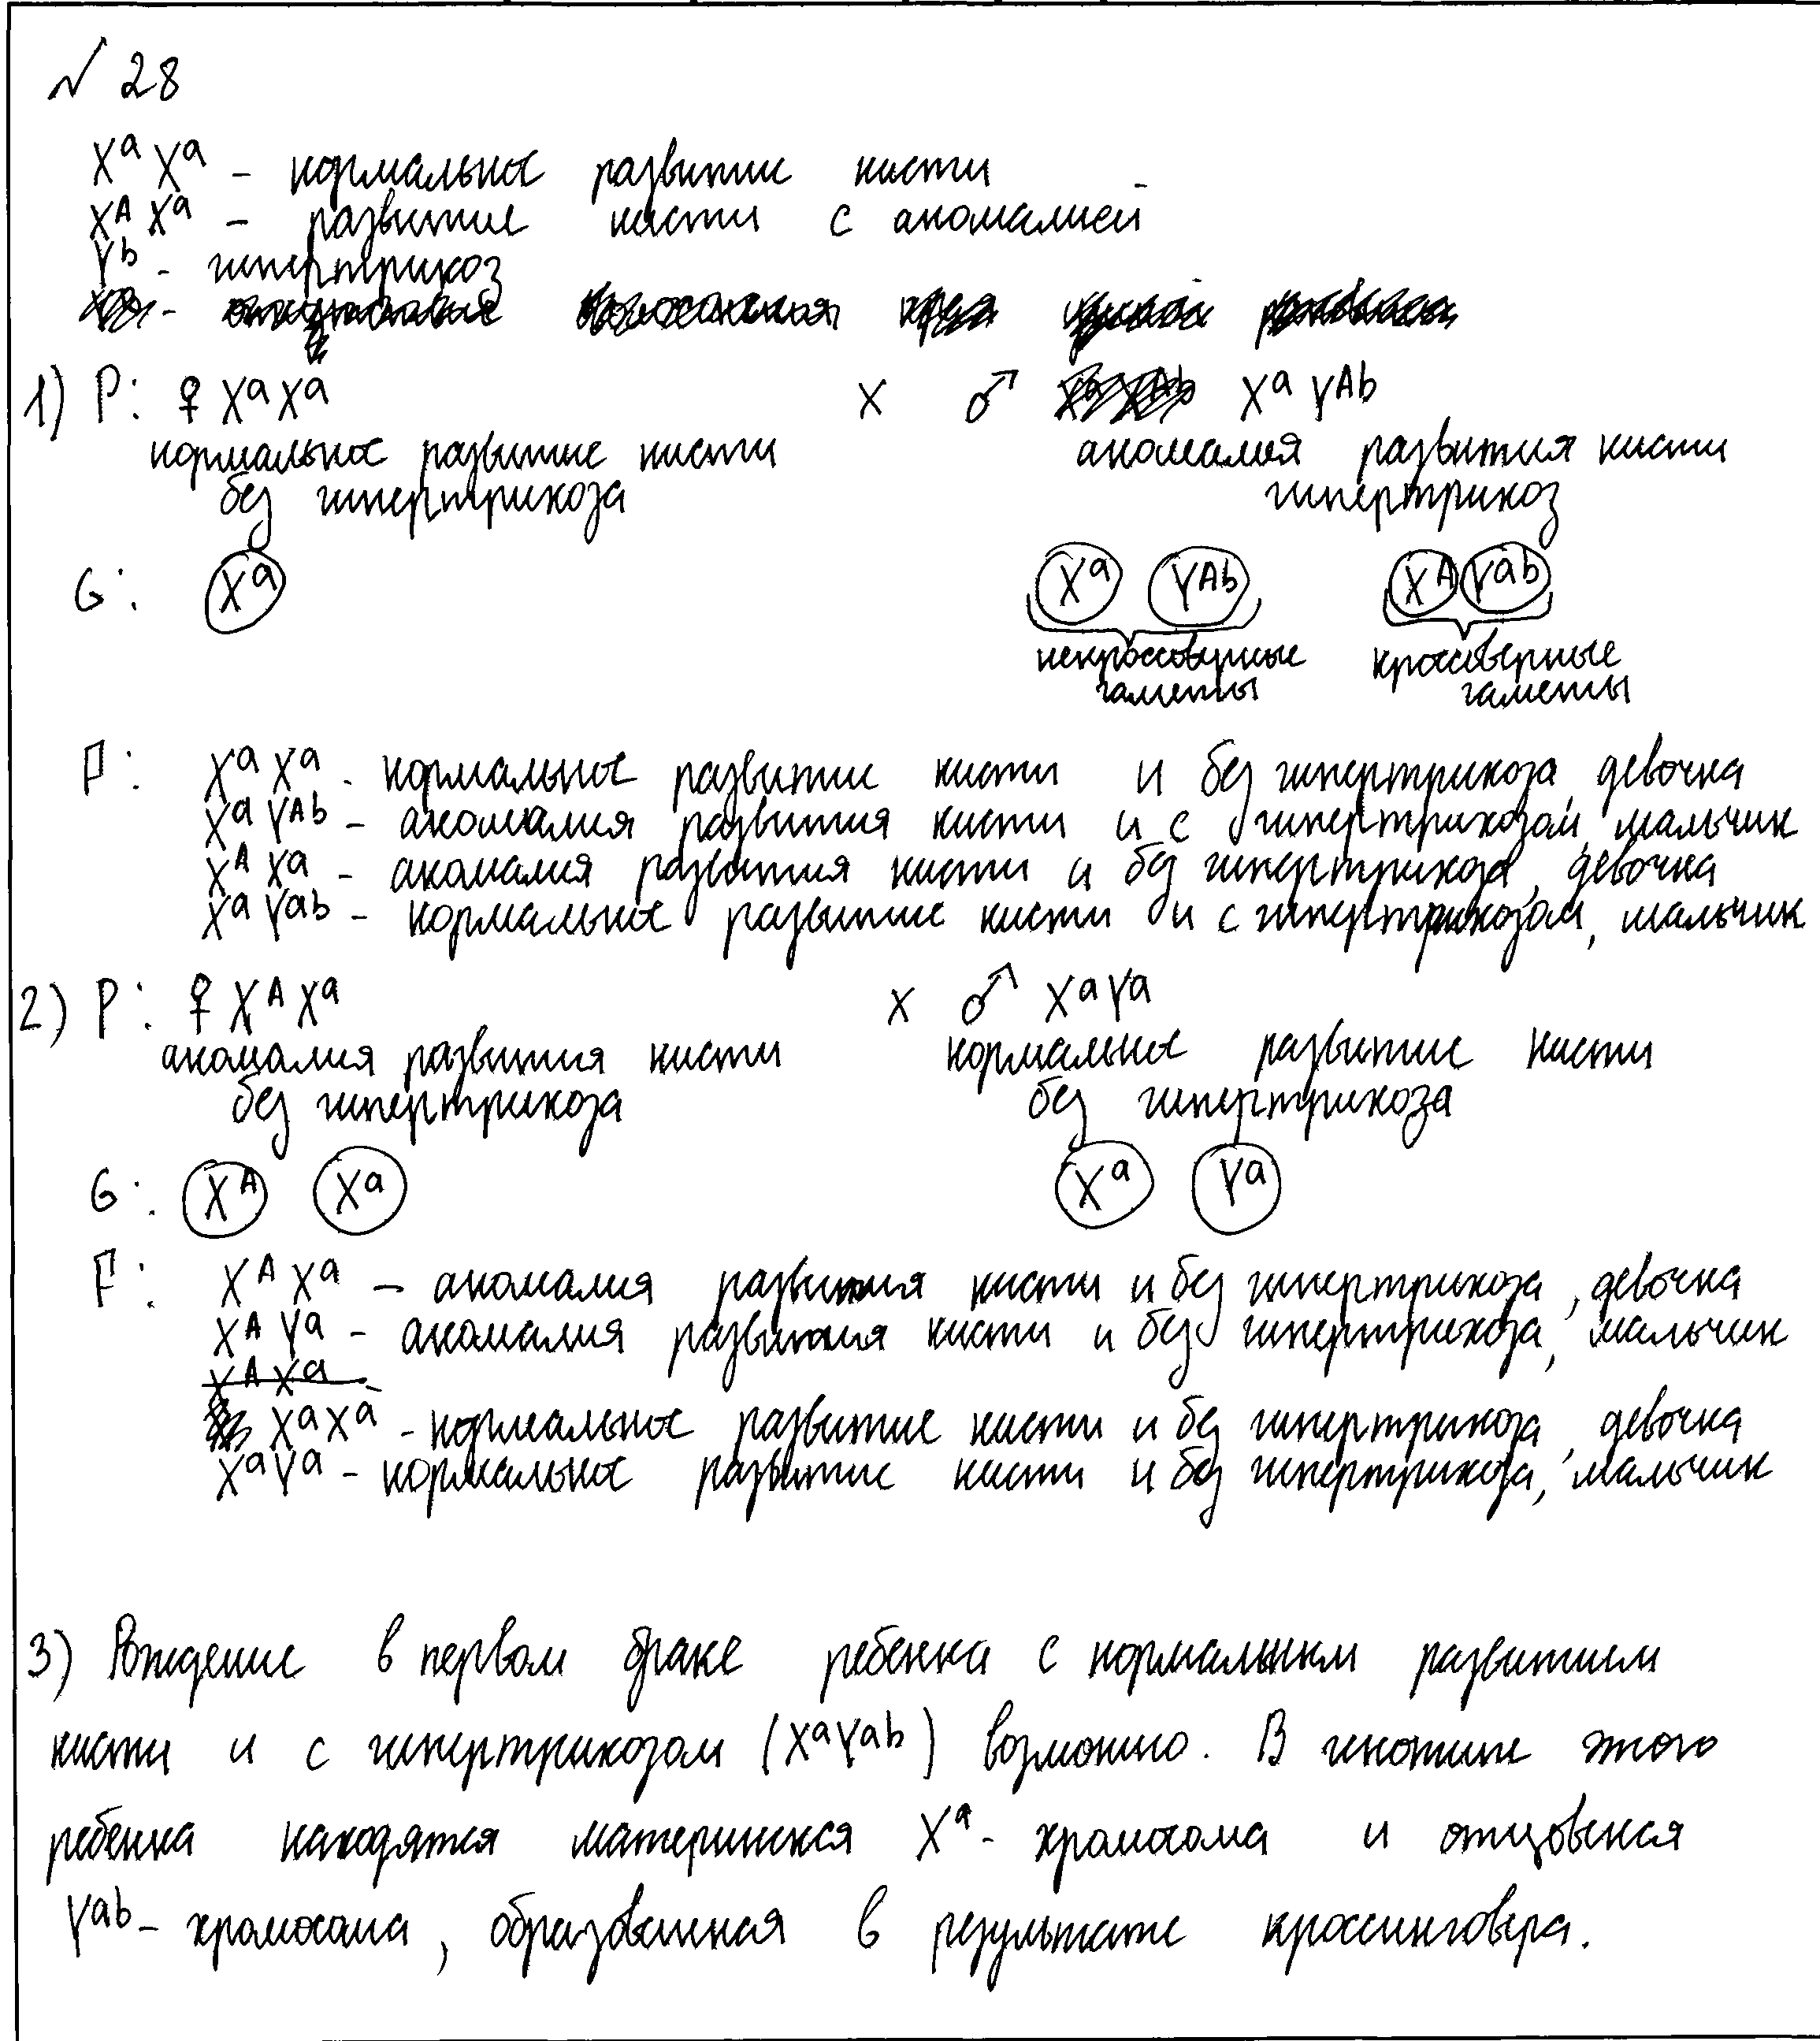 √ 28
Xᵃ Xᵃ - нормальное развитие кисти
Xᴬ Xᵃ - развитие кисти с аномалией
Yᵇ - гипертрихоз
1) P: ♀ Xᵃ Xᵃ x ♂ Xᵃ Yᴬᵇ
нормальное развитие кисти аномалия развития кисти
без гипертрихоза гипертрихоз
G: Xᵃ Xᵃ Yᴬᵇ Xᴬ Yᵃᵇ
некроссоверные кроссоверные
гаметы гаметы
F: Xᵃ Xᵃ - нормальное развитие кисти и без гипертрихоза, девочка
Xᵃ Yᴬᵇ - аномалия развития кисти и с гипертрихозом, мальчик
Xᴬ Xᵃ - аномалия развития кисти и без гипертрихоза, девочка
Xᵃ Yᵃᵇ - нормальное развитие кисти и с гипертрихозом, мальчик
2) P: ♀ Xᴬ Xᵃ x ♂ Xᵃ Yᵃ
аномалия развития кисти нормальное развитие кисти
без гипертрихоза без гипертрихоза
G: Xᴬ Xᵃ Xᵃ Yᵃ
F: Xᴬ Xᵃ - аномалия развития кисти и без гипертрихоза, девочка
Xᴬ Yᵃ - аномалия развития кисти и без гипертрихоза, мальчик
Xᴬ Xᵃ -
Xᵃ Xᵃ - нормальное развитие кисти и без гипертрихоза, девочка
Xᵃ Yᵃ - нормальное развитие кисти и без гипертрихоза, мальчик
3) Рождение в первом браке ребенка с нормальным развитием
кисти и с гипертрихозом (Xᵃ Yᵃᵇ) возможно. В генотипе этого
ребенка находятся материнская Xᵃ - хромосома и отцовская
Yᵃᵇ - хромосома, образованная в результате кроссинговера.